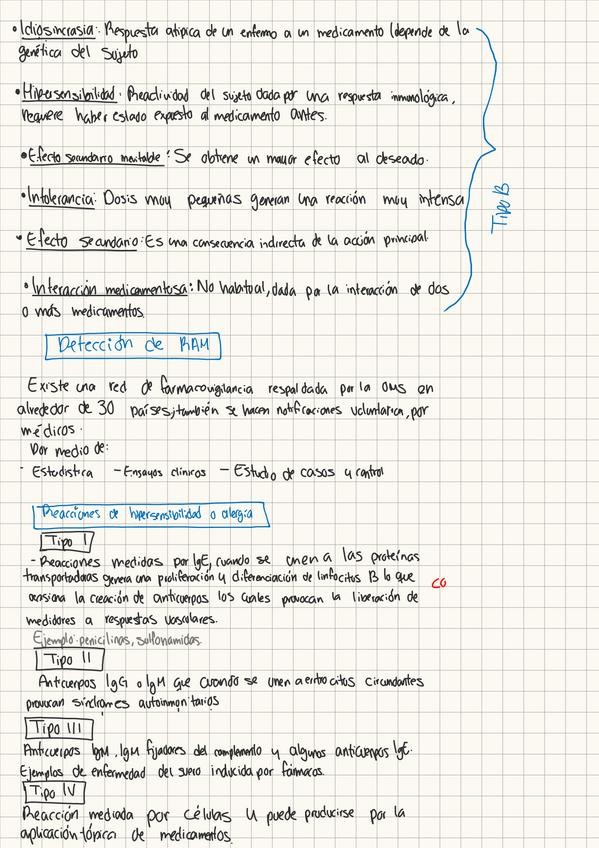 • Idiosincrasia: Respuesta atipica de un enfermo a un medicamento (depende de la
genética del sujeto
• Hipersensibilidad: Reactividad del sujeto dada por una respuesta inmunológica,
requiere haber estado expuesto al medicamento antes.
• Efecto secundario inevitable: Se obtiene un mayor efecto al deseado.
• Intolerancia: Dosis muy pequeñas generan una reacción muy intensa
• Efecto secundario: Es una consecuencia indirecta de la acción principal.
• Interacción medicamentosa: No habitual, dada por la interacción de dos
o más medicamentos.
Tipo B
Detección de RAM
Existe una red de farmacovigilancia respaldada por la OMS en
alrededor de 30 países, también se hacen notificaciones voluntarias, por
médicos.
Por medio de:
- Estadistica - Ensayos clínicos - Estudio de casos y control
Reacciones de hipersensibilidad o alergia
Tipo I
- Reacciones medidas por IgE, cuando se unen a las proteínas
transportadoras genera una proliferación y diferenciación de linfocitos B lo que
ocasiona la creación de anticuerpos los cuales provocan la liberación de
co
mediadores a respuestas vasculares.
Ejemplo: penicilinas, sulfonamidas.
Tipo II
Anticuerpos IgG o IgM que cuando se unen a eritrocitos circundantes
provocan síndromes autoinmunitarios
Tipo III
Anticuerpos IgM, IgM fijadores del complemento y algunos anticuerpos IgE.
Ejemplos de enfermedad del suero inducida por fármacos.
Tipo IV
Reacción mediada por células y puede producirse por la
aplicación tópica de medicamentos.